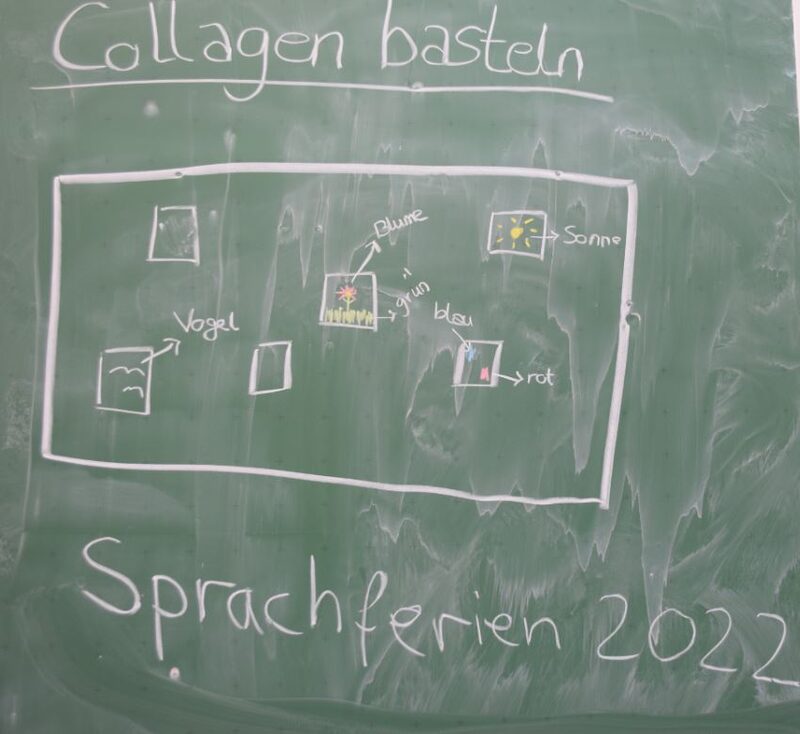 Collagen basteln
Blume
Sonne
grün
Vogel
blau
rot
Sprachferien 2022